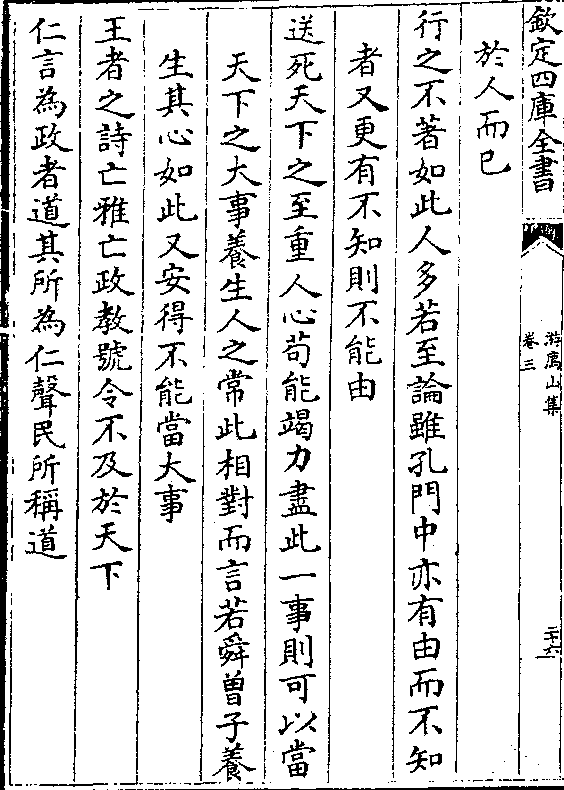 欽定四庫全書
游廌山集
卷三
二十六
於人而已
行之不著如此人多若至論雖孔門中亦有由而不知
者又更有不知則不能由
送死天下之至重人心苟能竭力盡此一事則可以當
天下之大事養生人之常此相對而言若舜曾子養
生其心如此又安得不能當大事
王者之詩亡雅亡政教號令不及於天下
仁言為政者道其所為仁聲民所稱道